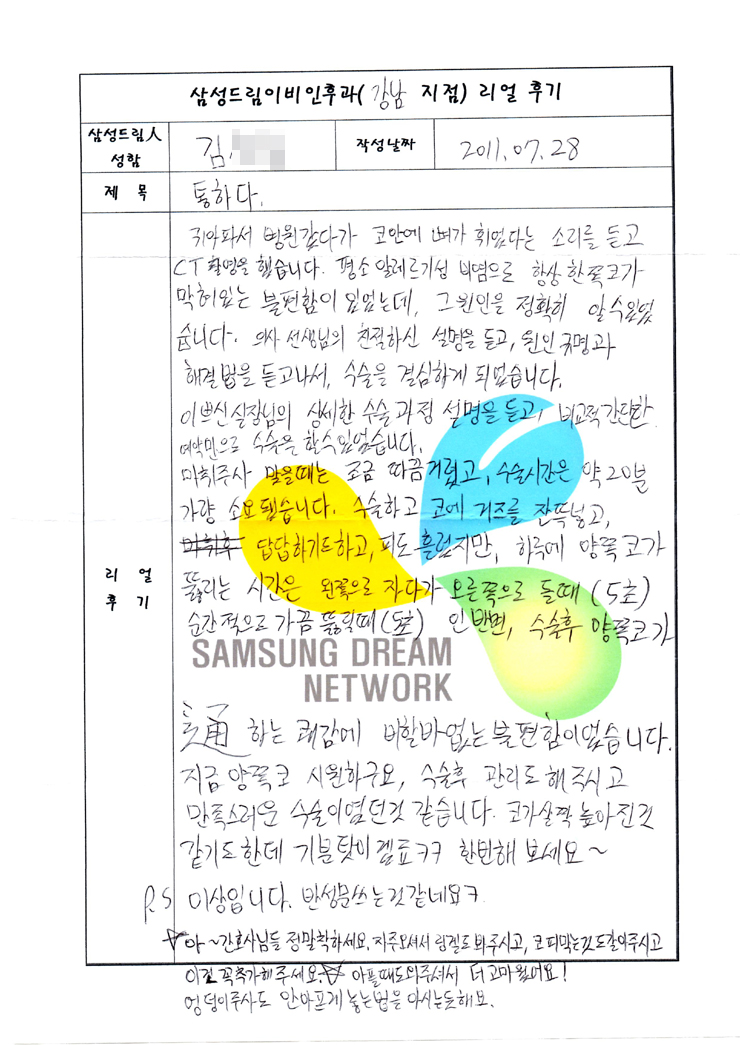 삼성드림이비인후과( 강남 지점) 리얼 후기
삼성드림人 성함 김. 작성날짜 2011.07.28
제 목 통하다.
리 얼 후 기
귀아파서 병원갔다가 코안에 뼈가 휘었다는 소리를 듣고
CT촬영을 했습니다. 평소 알레르기성 비염으로 항상 한쪽코가
막혀있는 불편함이 있었는데, 그원인을 정확히 알수있었
습니다. 의사 선생님의 친절하신 설명을 듣고, 원인 규명과
해결법을 듣고나서, 수술을 결심하게 되었습니다.
이쁘신 실장님의 상세한 수술과정 설명을 듣고, 비교적 간단한
예약만으로 수술을 할수있었습니다.
마취주사 맞을때는 조금 따끔거렸고, 수술시간은 약 20분
가량 소요됐습니다. 수술하고 코에 거즈를 잔뜩넣고,
마취후 답답하기도하고, 피도 흘렀지만, 하루에 양쪽코가
뚫리는 시간은 왼쪽으로 자다가 오른쪽으로 돌때 (5초)
순간적으로 가끔 뚫릴때(5초) 인 반면, 수술후 양쪽코가
SAMSUNG DREAM
NETWORK
通 하는 쾌감에 비할바없는 불편함이었습니다.
지금 양쪽코 시원하구요, 수술후 관리도 해주시고
만족스러운 수술이였던것 같습니다. 코가살짝 높아진것
같기도한데 기분탓이겠죠ㅋㅋ 한번해 보세요~
P.S 이상입니다. 반성문쓰는것같네요ㅋ
☆아~간호사님들 정말착하세요. 자주오셔서 링겔도 봐주시고, 코피막는것도갈아주시고
이건 꼭추가해주세요.☆ 아플때도와주셔서 더고마웠어요!
엉덩이주사도 안아프게 놓는법을 아시는듯해요.